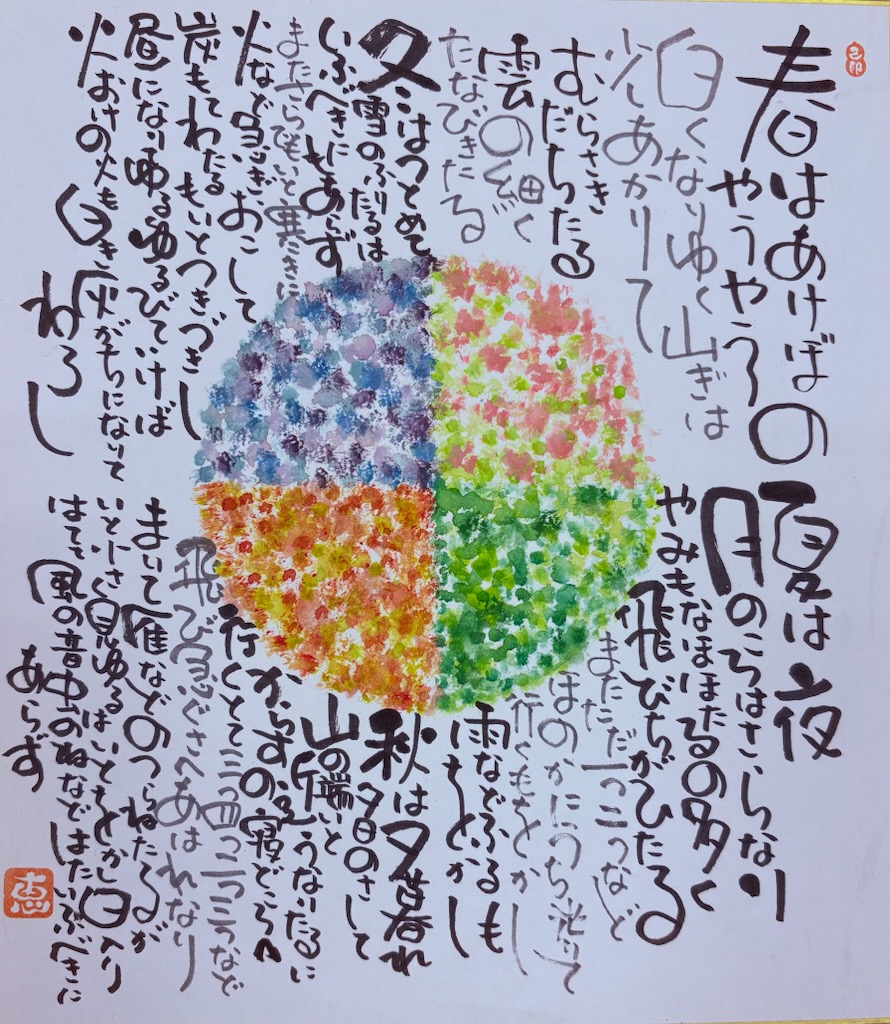 春はあけぼの
やうやう
白くなりゆく山ぎは
少しあかりて
むらさき
だちたる
雲の細く
たなびきたる
夏は夜
月のころはさらなり
やみもなほほたるの多く
飛びちがひたる
まただだ一つ二つなど
ほのかにうち光りて
行くもをかし
雨などふるも
をかし
秋は夕暮れ
夕日のさして
山の端いと
近うなりたるに
からすの寝どころへ
行くとて三つ四つ二つ三つなど
飛び急ぐさへあはれなり
まいて雁などのつらねたるが
いと小さく見ゆるはいとをかし日入り
はてて風の音虫のねなどはたいふべきに
あらず
冬はつとめて
雪のふりたるは
いふべきにもあらず
またさらでもいと寒きに
火など急ぎおこして
炭もてわたるもいとつきづきし
昼になりゆるゆるびていけば
火おけの火も白き灰がちになりて
わろし
恵